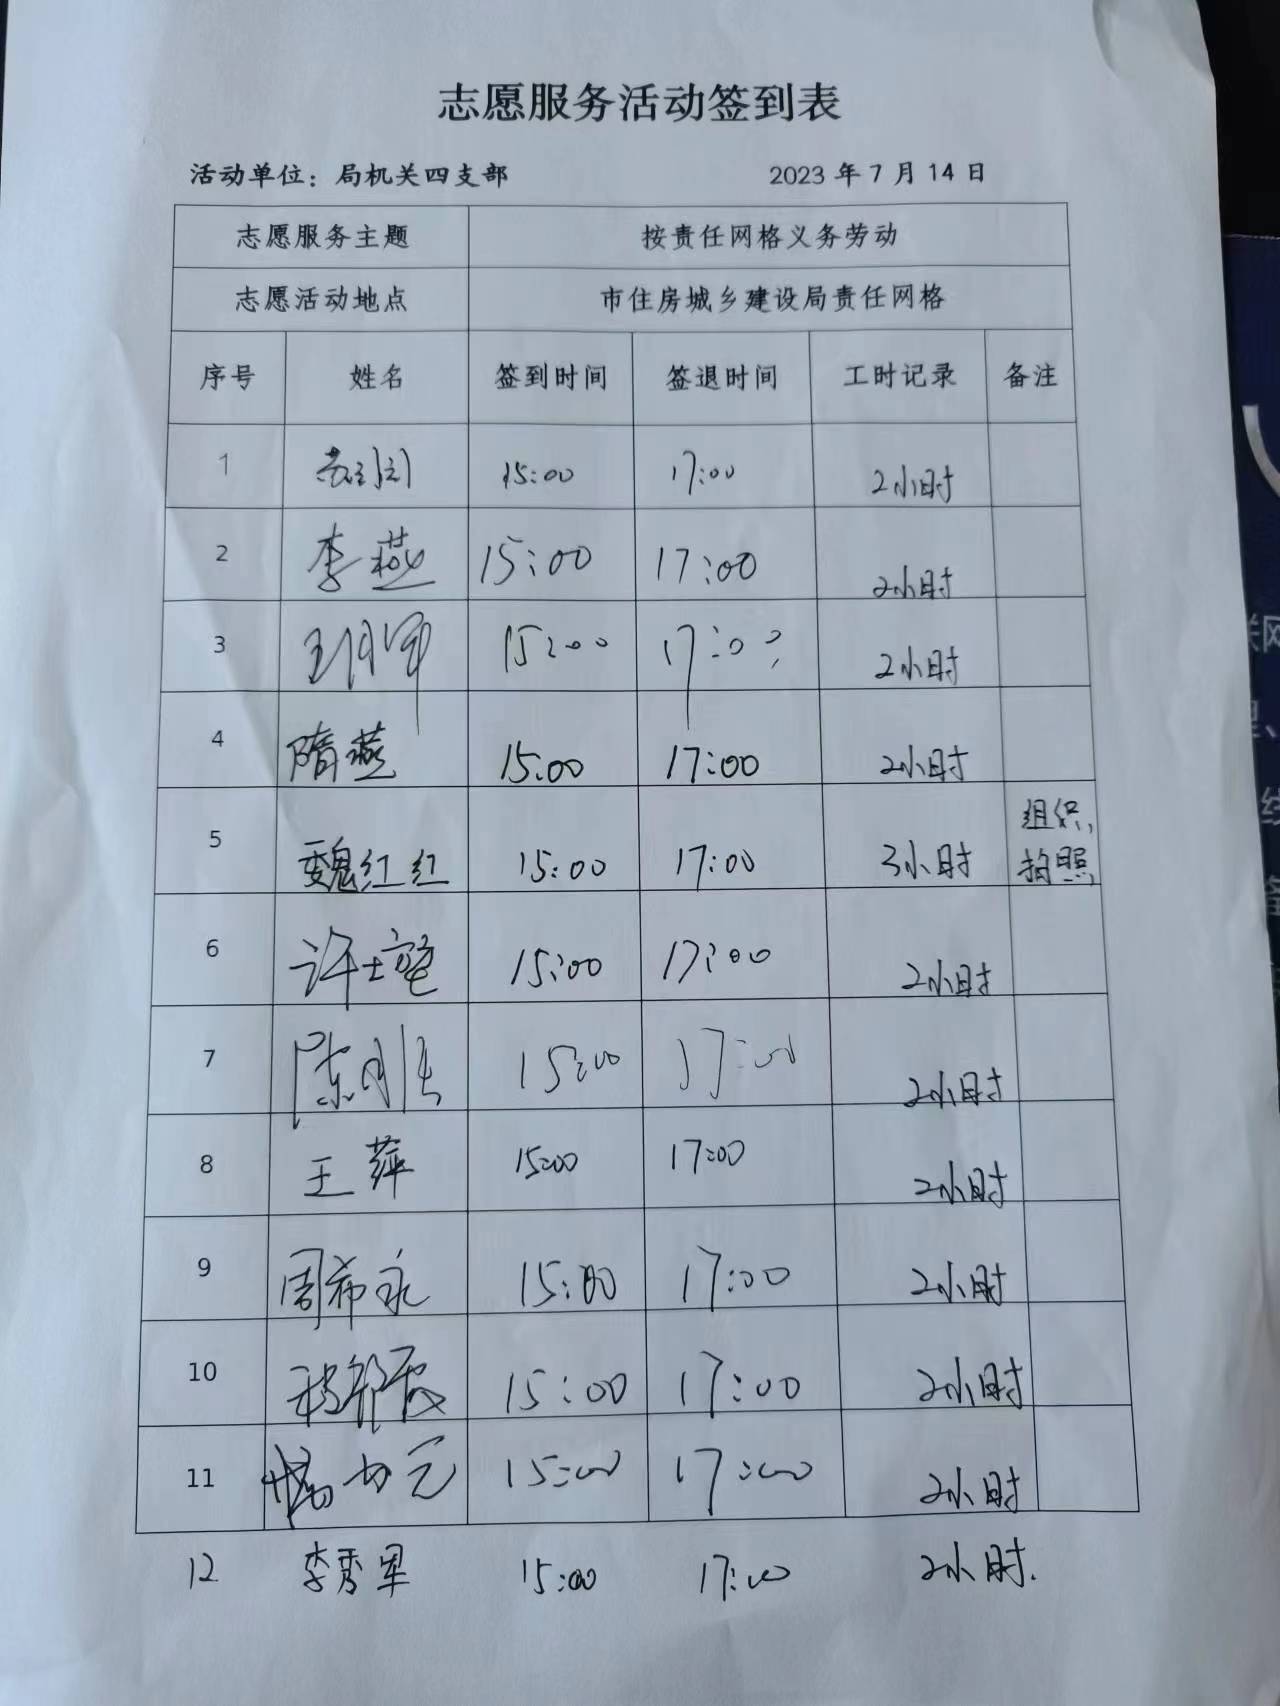 志愿服务活动签到表
活动单位：局机关四支部 2023年7月14日
志愿服务主题 按责任网格义务劳动
志愿活动地点 市住房城乡建设局责任网格
序号 姓名 签到时间 签退时间 工时记录 备注
1 15:00 17:00 2小时
2 李燕 15:00 17:00 2小时
3 15:00 17:00 2小时
4 隋燕 15:00 17:00 2小时
5 魏红红 15:00 17:00 3小时 组织,
拍照
6 15:00 17:00 2小时
7 15:00 17:00 2小时
8 王萍 15:00 17:00 2小时
9 周希永 15:00 17:00 2小时
10 15:00 17:00 2小时
11 15:00 17:00 2小时
12 李秀军 15:00 17:00 2小时.